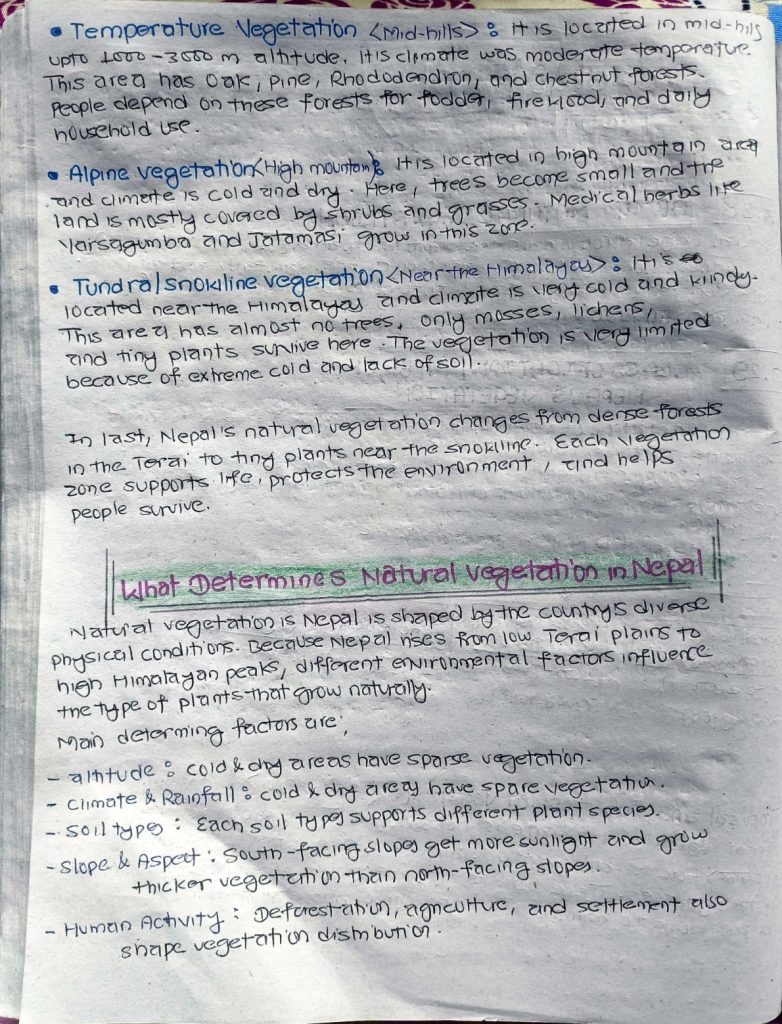 • Temperature Vegetation <Mid-hills> : It is located in mid-hills
upto 1000-3000 m altitude. It is climate was moderate temperature.
This area has Oak, Pine, Rhododendron, and chestnut forests.
People depend on these forests for fodder, firewood, and daily
household use.
• Alpine vegetation <High mountain> : It is located in high mountain area
and climate is cold and dry. Here, trees become small and the
land is mostly covered by shrubs and grasses. Medical herbs like
Yarsagumba and Jatamasi grow in this zone.
• Tundra/snowline vegetation <Near the Himalayas> : It is
located near the Himalayas and climate is very cold and windy.
This area has almost no trees, only mosses, lichens,
and tiny plants survive here. The vegetation is very limited
because of extreme cold and lack of soil.
In last, Nepal's natural vegetation changes from dense forests
in the Terai to tiny plants near the snowline. Each vegetation
zone supports life, protects the environment, and helps
people survive.
What Determines Natural Vegetation in Nepal
Natural vegetation is Nepal is shaped by the country's diverse
physical conditions. Because Nepal rises from low Terai plains to
high Himalayan peaks, different environmental factors influence
the type of plants that grow naturally.
Main determing factors are;
- altitude : cold & dry areas have sparse vegetation.
- Climate & Rainfall : cold & dry areas have spare vegetation.
- Soil types : Each soil types supports different plant species.
- Slope & Aspect : South-facing slopes get more sunlight and grow
thicker vegetation than north-facing slopes.
- Human Activity : Deforestation, agriculture, and settlement also
shape vegetation distribution.